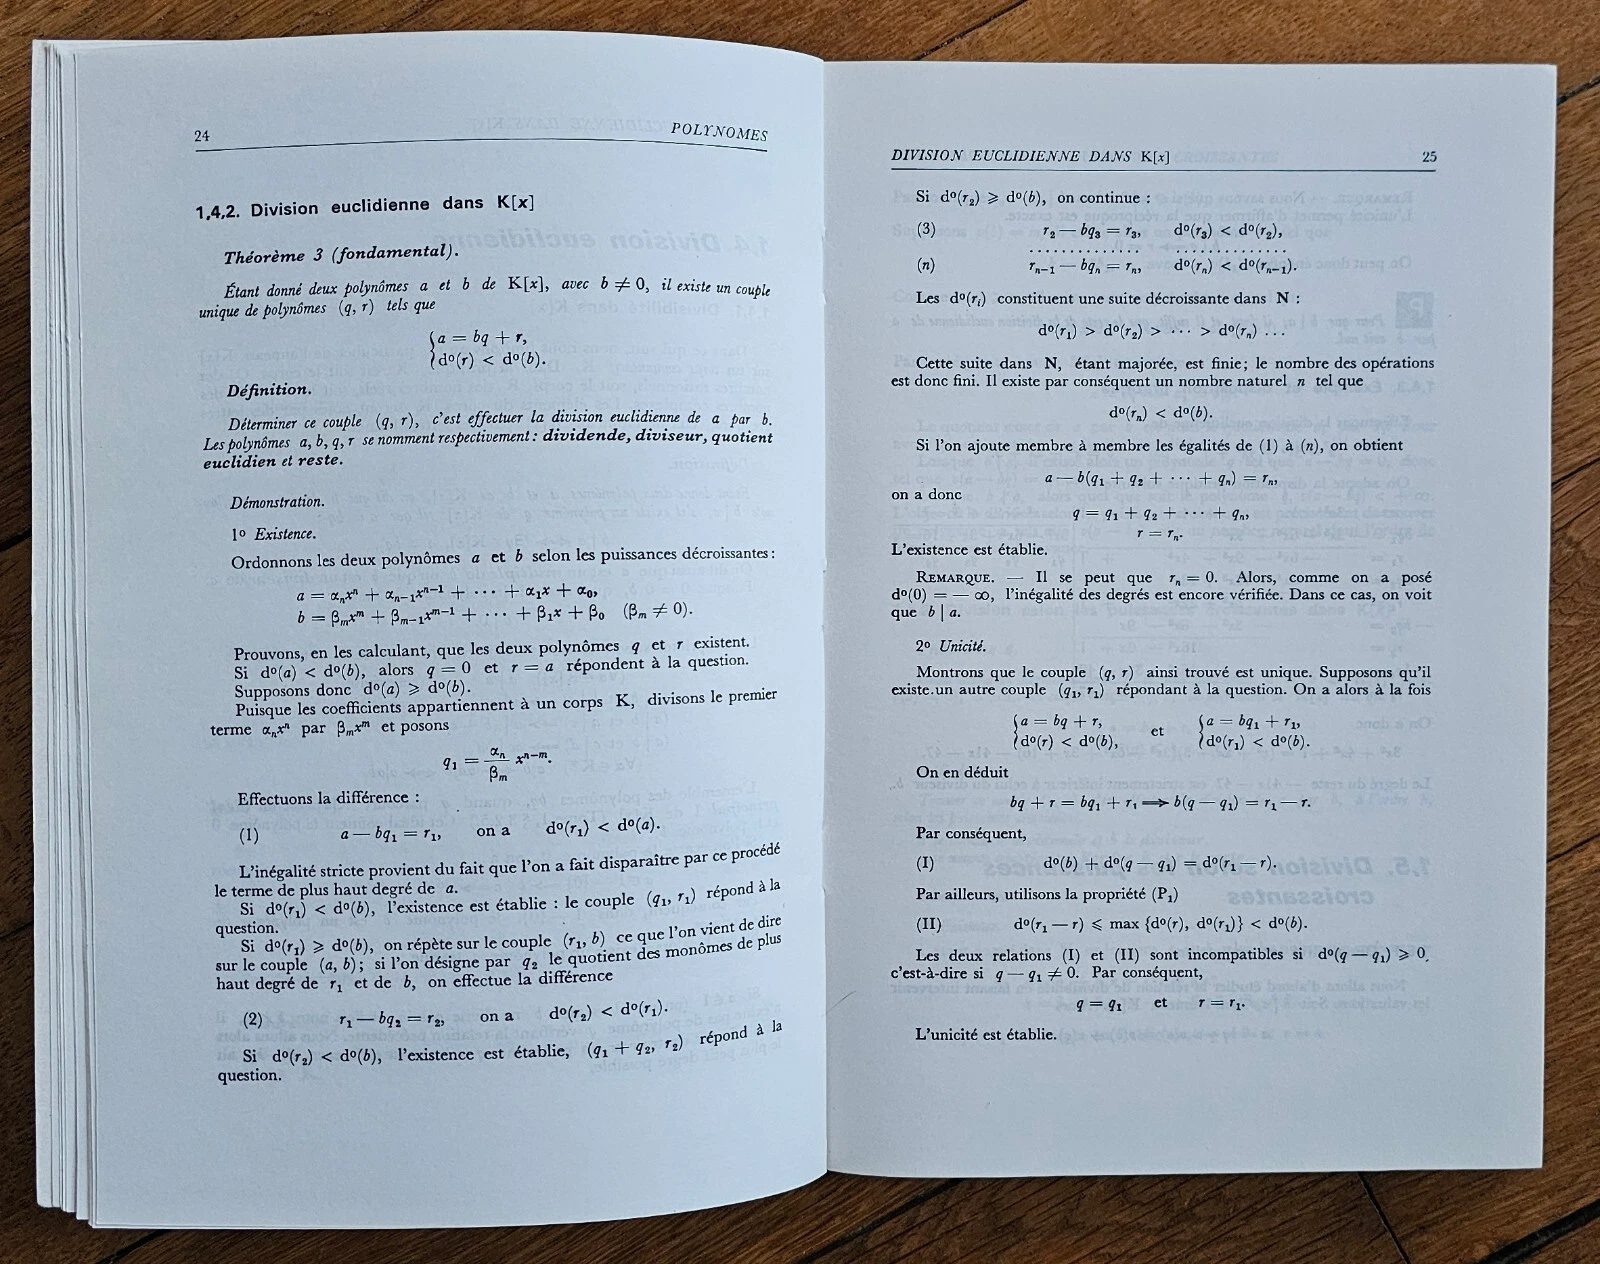 24 POLYNOMES
1,4,2. Division euclidienne dans K[x]
Théorème 3 (fondamental).
Étant donné deux polynômes a et b de K[x], avec b ≠ 0, il existe un couple
unique de polynômes (q, r) tels que
{a = bq + r,
{d⁰(r) < d⁰(b).
Définition.
Déterminer ce couple (q, r), c'est effectuer la division euclidienne de a par b.
Les polynômes a, b, q, r se nomment respectivement : dividende, diviseur, quotient
euclidien et reste.
Démonstration.
1⁰ Existence.
Ordonnons les deux polynômes a et b selon les puissances décroissantes :
a = αₙxⁿ + αₙ₋₁xⁿ⁻¹ + ··· + α₁x + α₀,
b = βₘxᵐ + βₘ₋₁xᵐ⁻¹ + ··· + β₁x + β₀ (βₘ ≠ 0).
Prouvons, en les calculant, que les deux polynômes q et r existent.
Si d⁰(a) < d⁰(b), alors q = 0 et r = a répondent à la question.
Supposons donc d⁰(a) ⩾ d⁰(b).
Puisque les coefficients appartiennent à un corps K, divisons le premier
terme αₙxⁿ par βₘxᵐ et posons
q₁ = αₙ/βₘ xⁿ⁻ᵐ.
Effectuons la différence :
(1) a — bq₁ = r₁, on a d⁰(r₁) < d⁰(a).
L'inégalité stricte provient du fait que l'on a fait disparaître par ce procédé
le terme de plus haut degré de a.
Si d⁰(r₁) < d⁰(b), l'existence est établie : le couple (q₁, r₁) répond à la
question.
Si d⁰(r₁) ⩾ d⁰(b), on répète sur le couple (r₁, b) ce que l'on vient de dire
sur le couple (a, b) ; si l'on désigne par q₂ le quotient des monômes de plus
haut degré de r₁ et de b, on effectue la différence
(2) r₁ — bq₂ = r₂, on a d⁰(r₂) < d⁰(r₁).
Si d⁰(r₂) < d⁰(b), l'existence est établie, (q₁ + q₂, r₂) répond à la
question.
DIVISION EUCLIDIENNE DANS K[x] 25
Si d⁰(r₂) ⩾ d⁰(b), on continue :
(3) r₂ — bq₃ = r₃, d⁰(r₃) < d⁰(r₂),
. . . . . . . . . . . . . . . . . . . . . . . . . .
(n) rₙ₋₁ — bqₙ = rₙ, d⁰(rₙ) < d⁰(rₙ₋₁).
Les d⁰(rᵢ) constituent une suite décroissante dans N :
d⁰(r₁) > d⁰(r₂) > ··· > d⁰(rₙ) ...
Cette suite dans N, étant majorée, est finie ; le nombre des opérations
est donc fini. Il existe par conséquent un nombre naturel n tel que
d⁰(rₙ) < d⁰(b).
Si l'on ajoute membre à membre les égalités de (1) à (n), on obtient
a — b(q₁ + q₂ + ··· + qₙ) = rₙ,
on a donc
q = q₁ + q₂ + ··· + qₙ,
r = rₙ.
L'existence est établie.
REMARQUE. — Il se peut que rₙ = 0. Alors, comme on a posé
d⁰(0) = — ∞, l'inégalité des degrés est encore vérifiée. Dans ce cas, on voit
que b | a.
2⁰ Unicité.
Montrons que le couple (q, r) ainsi trouvé est unique. Supposons qu'il
existe un autre couple (q₁, r₁) répondant à la question. On a alors à la fois
{a = bq + r, et {a = bq₁ + r₁,
{d⁰(r) < d⁰(b), {d⁰(r₁) < d⁰(b).
On en déduit
bq + r = bq₁ + r₁ ⟹ b(q — q₁) = r₁ — r.
Par conséquent,
(I) d⁰(b) + d⁰(q — q₁) = d⁰(r₁ — r).
Par ailleurs, utilisons la propriété (P₁)
(II) d⁰(r₁ — r) ⩽ max {d⁰(r), d⁰(r₁)} < d⁰(b).
Les deux relations (I) et (II) sont incompatibles si d⁰(q — q₁) ⩾ 0,
c'est-à-dire si q — q₁ ≠ 0. Par conséquent,
q = q₁ et r = r₁.
L'unicité est établie.